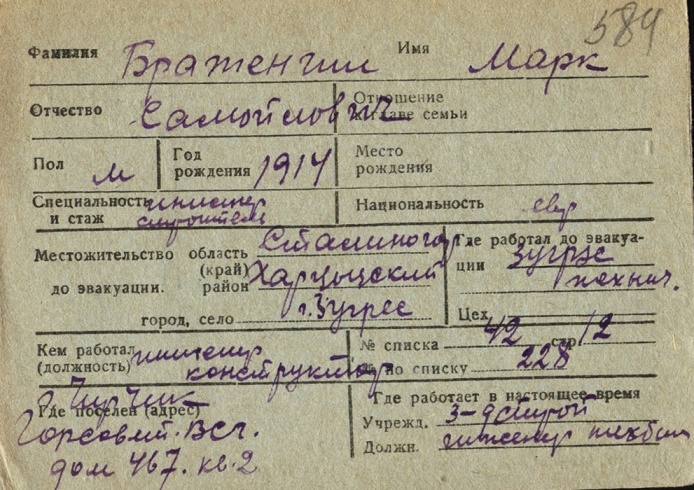 584
Фамилия Браженгин Имя Марк
Отчество Самойлович Отношение
к главе семьи
Пол м Год
рождения 1914 Место
рождения
Специальность инженер
и стаж строитель Национальность евр
Местожительство область Сталиногор Где работал до эвакуа-
(край) Харцызский ции Зугрэс
до эвакуации. район технич.
город, село г. Зугрес Цех
Кем работал инженер № списка 42 стр 12
(должность) конструктор № по списку 228
г. Чирчик
Где поселен (адрес) Где работает в настоящее время
Горсовет. Учрежд.
дом 467. кв. 2 Должн. инженер